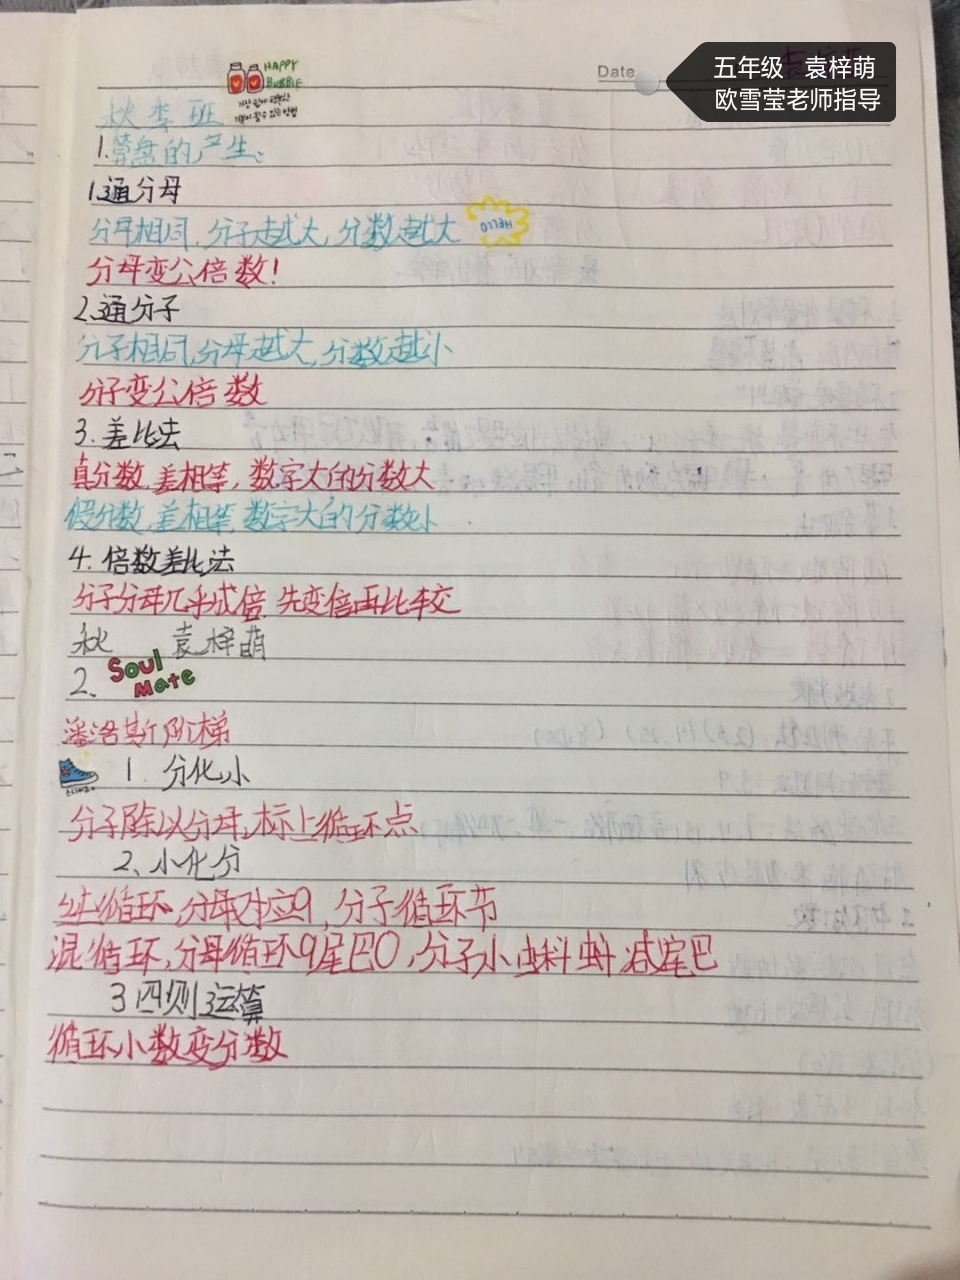 五年级 袁梓萌
欧雪莹老师指导
Date
HAPPY
BUBBLE
秋季班
1.算盘的产生、
1.通分母
分母相同,分子越大,分数越大
HELLO
分母变公倍数!
2.通分子
分子相同,分母越大,分数越小
分子变公倍数
3.差比法
真分数,差相等,数字大的分数大
假分数,差相等,数字大的分数小
4.倍数差比法
分子分母几乎成倍,先变倍再比较
秋 袁梓萌
2、Soul
Mate
潘洛斯阶梯
1. 分化小
分子除以分母,标上循环点
2、小化分
纯循环,分母对应9,分子循环节
混循环,分母循环9尾巴0,分子小蝌蚪减尾巴
3四则运算
循环小数变分数